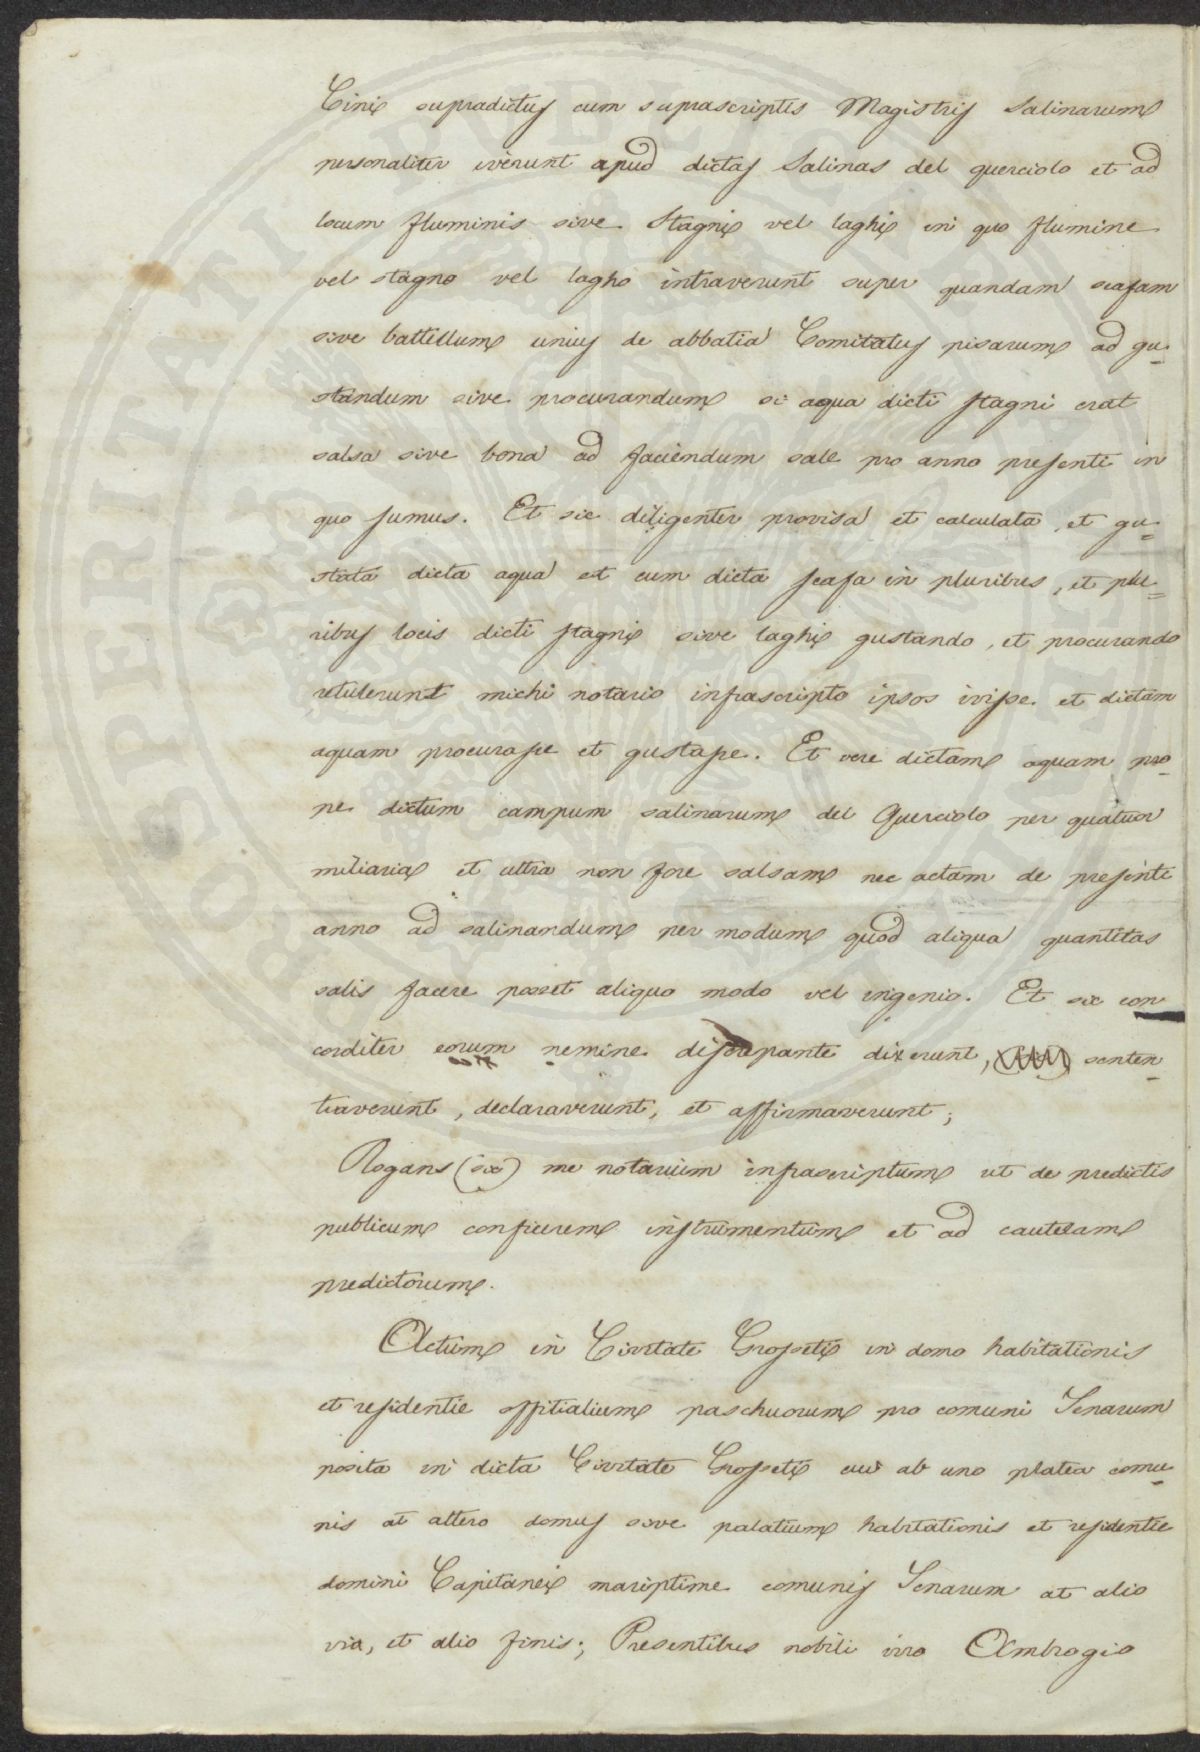 Cini supradictus cum suprascriptis Magistris Salinarum
personaliter iverunt apud dictas Salinas del querciolo et ad
locum fluminis sive Stagni vel laghi in quo flumine
vel stagno vel lagho intraverunt super quandam scafam
sive battellum unius de abbatia Comitatus pisarum ad gu=
standum sive procurandum si aqua dicti stagni erat
salsa sive bona ad faciendum sale pro anno presenti in
quo sumus. Et sic diligenter provisa et calculata, et gu=
stata dicta aqua et cum dicta scafa in pluribus, et plu=
ribus locis dicti stagni sive laghi gustando, et procurando
retulerunt michi notario infrascripto ipsos ivisse et dictam
aquam procurasse et gustasse. Et vere dictam aquam pro=
pe dictum campum salinarum del Querciolo per quatuor
miliaria et ultra non fore salsam nec actam de presenti
anno ad salinandum per modum quod aliqua quantitas
salis facere posset aliquo modo vel ingenio. Et sic con
corditer eorum nemine discrepante dixerunt, senten=
tiaverunt, declaraverunt, et affirmaverunt;
Rogans (sic) me notarium infrascriptum ut de predictis
publicum conficerem instrumentum et ad cautelam
predictorum.
Actum in Civitate Grosseti in domo habitationis
et residentie offitialium paschuorum pro comuni Senarum
posita in dicta Civitate Grosseti cui ab uno platea comu=
nis at altero domus sive palatium habitationis et residentie
domini Capitanei mariptime comunis Senarum at alio
via, et alio finis; Presentibus nobili viro Ambrogio
PROSPERITATI PVBLICAE